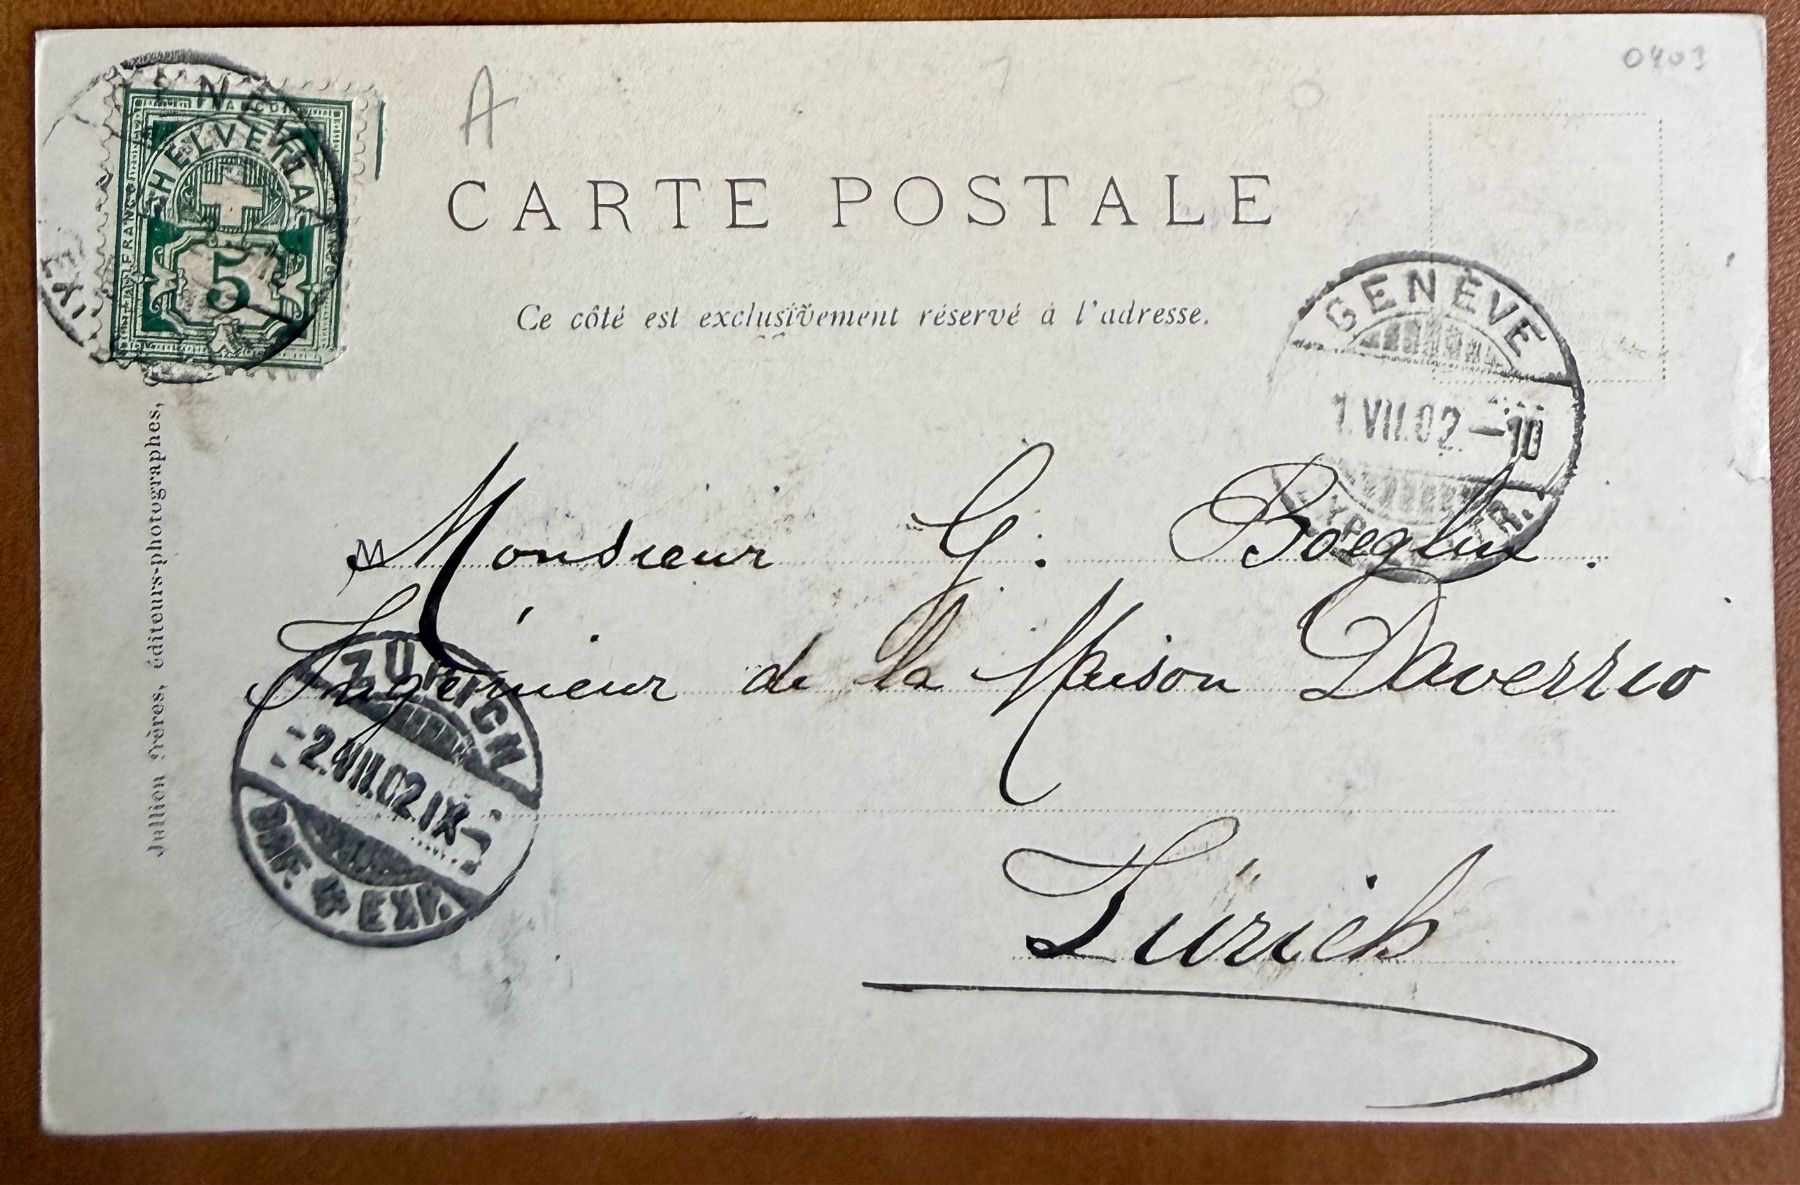 A
0403
FRANCO
HELVETIA
FRANCO
5
CARTE POSTALE
Ce côté est exclusivement réservé à l'adresse.
GENÈVE
1.VII.02.–10
EXP. LETTR.
Monsieur G. Boeglin.
Ingénieur de la Maison Daverrio
ZÜRICH
2.VII.02.IX–
BRF. EXP.
Zürich
Jullien frères, éditeurs-photographes,